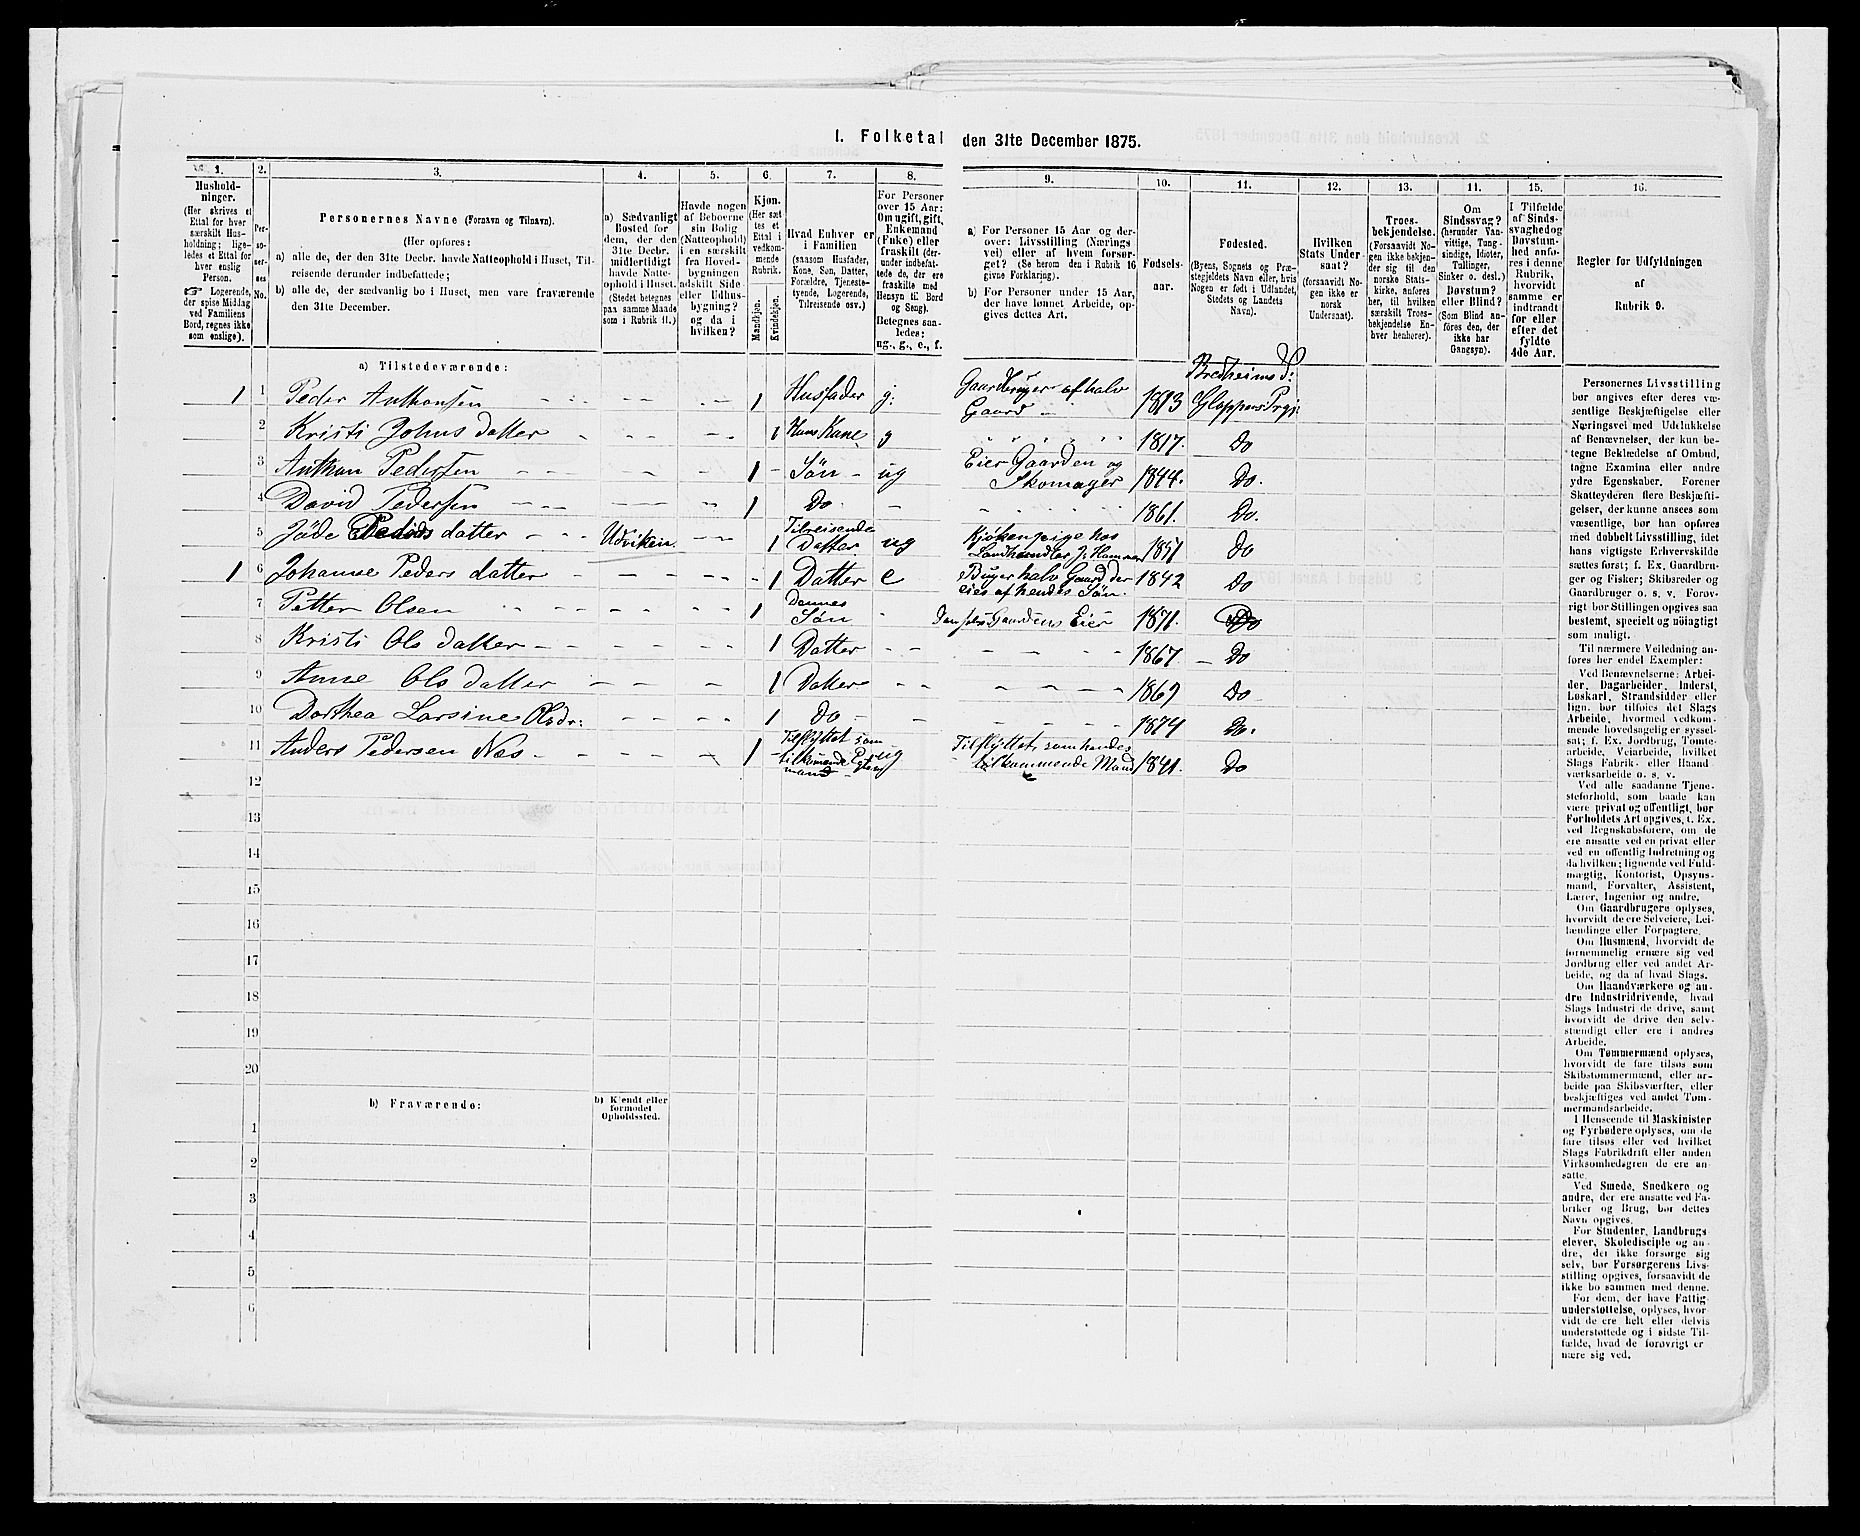 I. Folketal den 31te December 1875.
1.
Hushold-
ninger.
(Her skrives et
Ettal for hver
særskilt Hus-
holdning; lige-
ledes et Ettal for
hver enslig
Person.
☞ Logerende,
der spise Middag
ved Familiens
Bord, regnes ikke
som enslige).
2.
Per-
so-
ner-
nes
No.
3.
Personernes Navne (Fornavn og Tilnavn).
(Her opføres:
a) alle de, der den 31te Decbr. havde Natteophold i Huset, Til-
reisende derunder indbefattede;
b) alle de, der sædvanlig bo i Huset, men vare fraværende
den 31te December.
4.
a) Sædvanligt
Bosted for
dem, der den
31te Decbr.
midlertidigt
havde Natte-
ophold i Huset.
(Stedet betegnes
paa samme Maade
som i Rubrik 11.)
5.
Havde nogen
af Beboerne
sin Bolig
(Natteophold)
i en særskilt
fra Hoved-
bygningen
adskilt Side-
eller Udhus-
bygning?
og da i
hvilken?
6.
Kjøn.
(Her sæt-
tes et
Ettal i
vedkom-
mende
Rubrik.
Mandkjøn.
Kvindekjøn.
7.
Hvad Enhver er
i Familien
(saasom Husfader,
Kone, Søn, Datter,
Forældre, Tjeneste-
tyende, Logerende,
Tilreisende osv.)
8.
For Personer
over 15 Aar:
Om ugift, gift,
Enkemand
(Enke) eller
fraskilt (der-
under indbefat-
tede de, der ere
fraskilte med
Hensyn til Bord
og Seng).
Betegnes saa-
ledes:
ug., g., e., f.
9.
a) For Personer 15 Aar og der-
over: Livsstilling (Nærings-
vei) eller af hvem forsør-
get? (Se herom den i Rubrik 16
givne Forklaring).
b) For Personer under 15 Aar,
der have lønnet Arbeide, op-
gives dettes Art.
10.
Fødsels-
aar.
11.
Fødested.
(Byens, Sognets og Præ-
stegjeldets Navn eller, hvis
Nogen er født i Udlandet,
Stedets og Landets
Navn).
12.
Hvilken
Stats Under-
saat?
(forsaavidt No-
gen ikke er
norsk
Undersaat).
13.
Troes-
bekjendelse.
(Forsaavidt No-
gen ikke bekjen-
der sig til den
norske Stats-
kirke, anføres
her, til hvilken
særskilt Troes-
bekjendelse En-
hver henhører).
14.
Om
Sindssvag?
(herunder Van-
vittige, Tung-
sindige, Idioter,
Tullinger,
Sinker o. desl.)
Døvstum?
eller Blind?
(Som Blind an-
føres den, der
ikke har
Gangsyn).
15.
I Tilfælde
af Sinds-
svaghed og
Døvstum-
hed anfø-
res i denne
Rubrik,
hvorvidt
samme er
indtraadt
før eller
efter det
fyldte
4de Aar.
16.
Regler for Udfyldningen
af
Rubrik 9.
a) Tilstedeværende:
1 1 Peder Anthonsen 1 Husfader g. Gaardbruger af halv Gaard 1813 Bredheims S: Gloppens Prgj:
2 Kristi Johns datter 1 Hans Kone g 1817. Do
3 Anthon Pedersen 1 Søn ug Eier Gaarden og Skomager 1844. Do.
4 David Pedersen 1 Do. 1861. Do.
5 Jöde Peders datter Udviken 1 Tilreisende Datter ug Kjøkenpige hos Landhandler 1857 Do
1 6 Johanne Peders datter 1 Datter e Buger halv Gaard der eies af hendes Søn. 1842 Do
7 Petter Olsen 1 Dennes Søn Gaardens Eier 1871. Do
8 Kristi Ols datter 1 Datter 1867. Do
9 Anne Ols datter 1 Datter 1869 Do
10 Dorthea Larsine Olsdr: 1 Do 1874 Do.
11 Anders Pedersen Nes 1 Tilflyttet som tilkomende Egtemand ug Tilflyttet som hendes tilkommende Mand 1841. Do
12
13
14
15
16
17
18
19
20
b) Fraværende:
b) Kjendt eller
formodet
Opholdssted.
1
2
3
4
5
6
Personernes Livsstilling
bør angives efter deres væ-
sentlige Beskjæftigelse eller
Næringsvei med Udelukkelse
af Benævnelser, der kun be-
tegne Beklædelse af Ombud,
tagne Examina eller andre
ydre Egenskaber. Forener
Skatteyderen flere Beskjæfti-
gelser, der kunne ansees som
væsentlige, bør han opføres
med dobbelt Livsstilling, idet
hans vigtigste Erhvervskilde
sættes først; f. Ex. Gaardbru-
ger og Fisker; Skibsreder og
Gaardbruger o. s. v. Forøv-
rigt bør Stillingen opgives saa
bestemt, specielt og nöiagtigt
som muligt.
Til nærmere Veiledning an-
føres her endel Exempler:
Ved Benævnelserne: Arbei-
der, Dagarbeider, Inderst,
Løskarl, Strandsidder eller
lign. bør tilføies det Slags
Arbeide, hvormed vedkom-
mende hovedsagelig er syssel-
sat; f. Ex. Jordbrug, Tømte-
arbeide, Veiarbeide, hvilket
Slags Fabrik- eller Haand-
værksarbeide o. s. v.
Ved alle saadanne Tjene-
steforhold, som baade kan
være privat og offentligt, bør
Forholdets Art opgives, t. Ex.
ved Regnskabsførere, om de
ere ansatte ved en privat eller
ved en offentlig Indretning og
da hvilken; lignende ved Fuld-
mægtig, Kontorist, Opsyns-
mand, Forvalter, Assistent,
Lærer, Ingeniør og andre.
Om Gaardbrugere oplyses,
hvorvidt de ere Selveiere, Lei-
lændinge eller Forpagtere.
Om Husmænd, hvorvidt de
fornemmelig ernære sig ved
Jordbrug eller ved andet Ar-
beide, og da af hvad Slags.
Om Haandværkere og an-
dre Industridrivende, hvad
Slags Industri de drive, samt
hvorvidt de drive den selv-
stændigt eller ere i andres
Arbeide.
Om Tømmermænd oplyses,
hvorvidt de fare tilsøs som
Skibstømmermænd, eller ar-
beide paa Skibsværfter, eller
beskjæftiges ved andet Tøm-
mermandsarbeide.
I Henseende til Maskinister
og Fyrbødere oplyses, om de
fare tilsøs eller ved hvilket
Slags Fabrikdrift eller anden
Virksomhedsgren de ere an-
satte.
Ved Smede, Snedkere og
andre, der ere ansatte ved Fa-
briker og Brug, bør dettes
Navn opgives.
For Studenter, Landbrugs-
elever, Skoledisciple og an-
dre, der ikke forsørge sig
selv, bør Forsørgerens Livs-
stilling opgives, forsaavidt de
ikke bo sammen med denne.
For dem, der have Fattig-
understøttelse, oplyses, hvor-
vidt de ere helt eller delvis
understøttede og i sidste Til-
fælde, hvad de forøvrigt er-
nære sig ved.